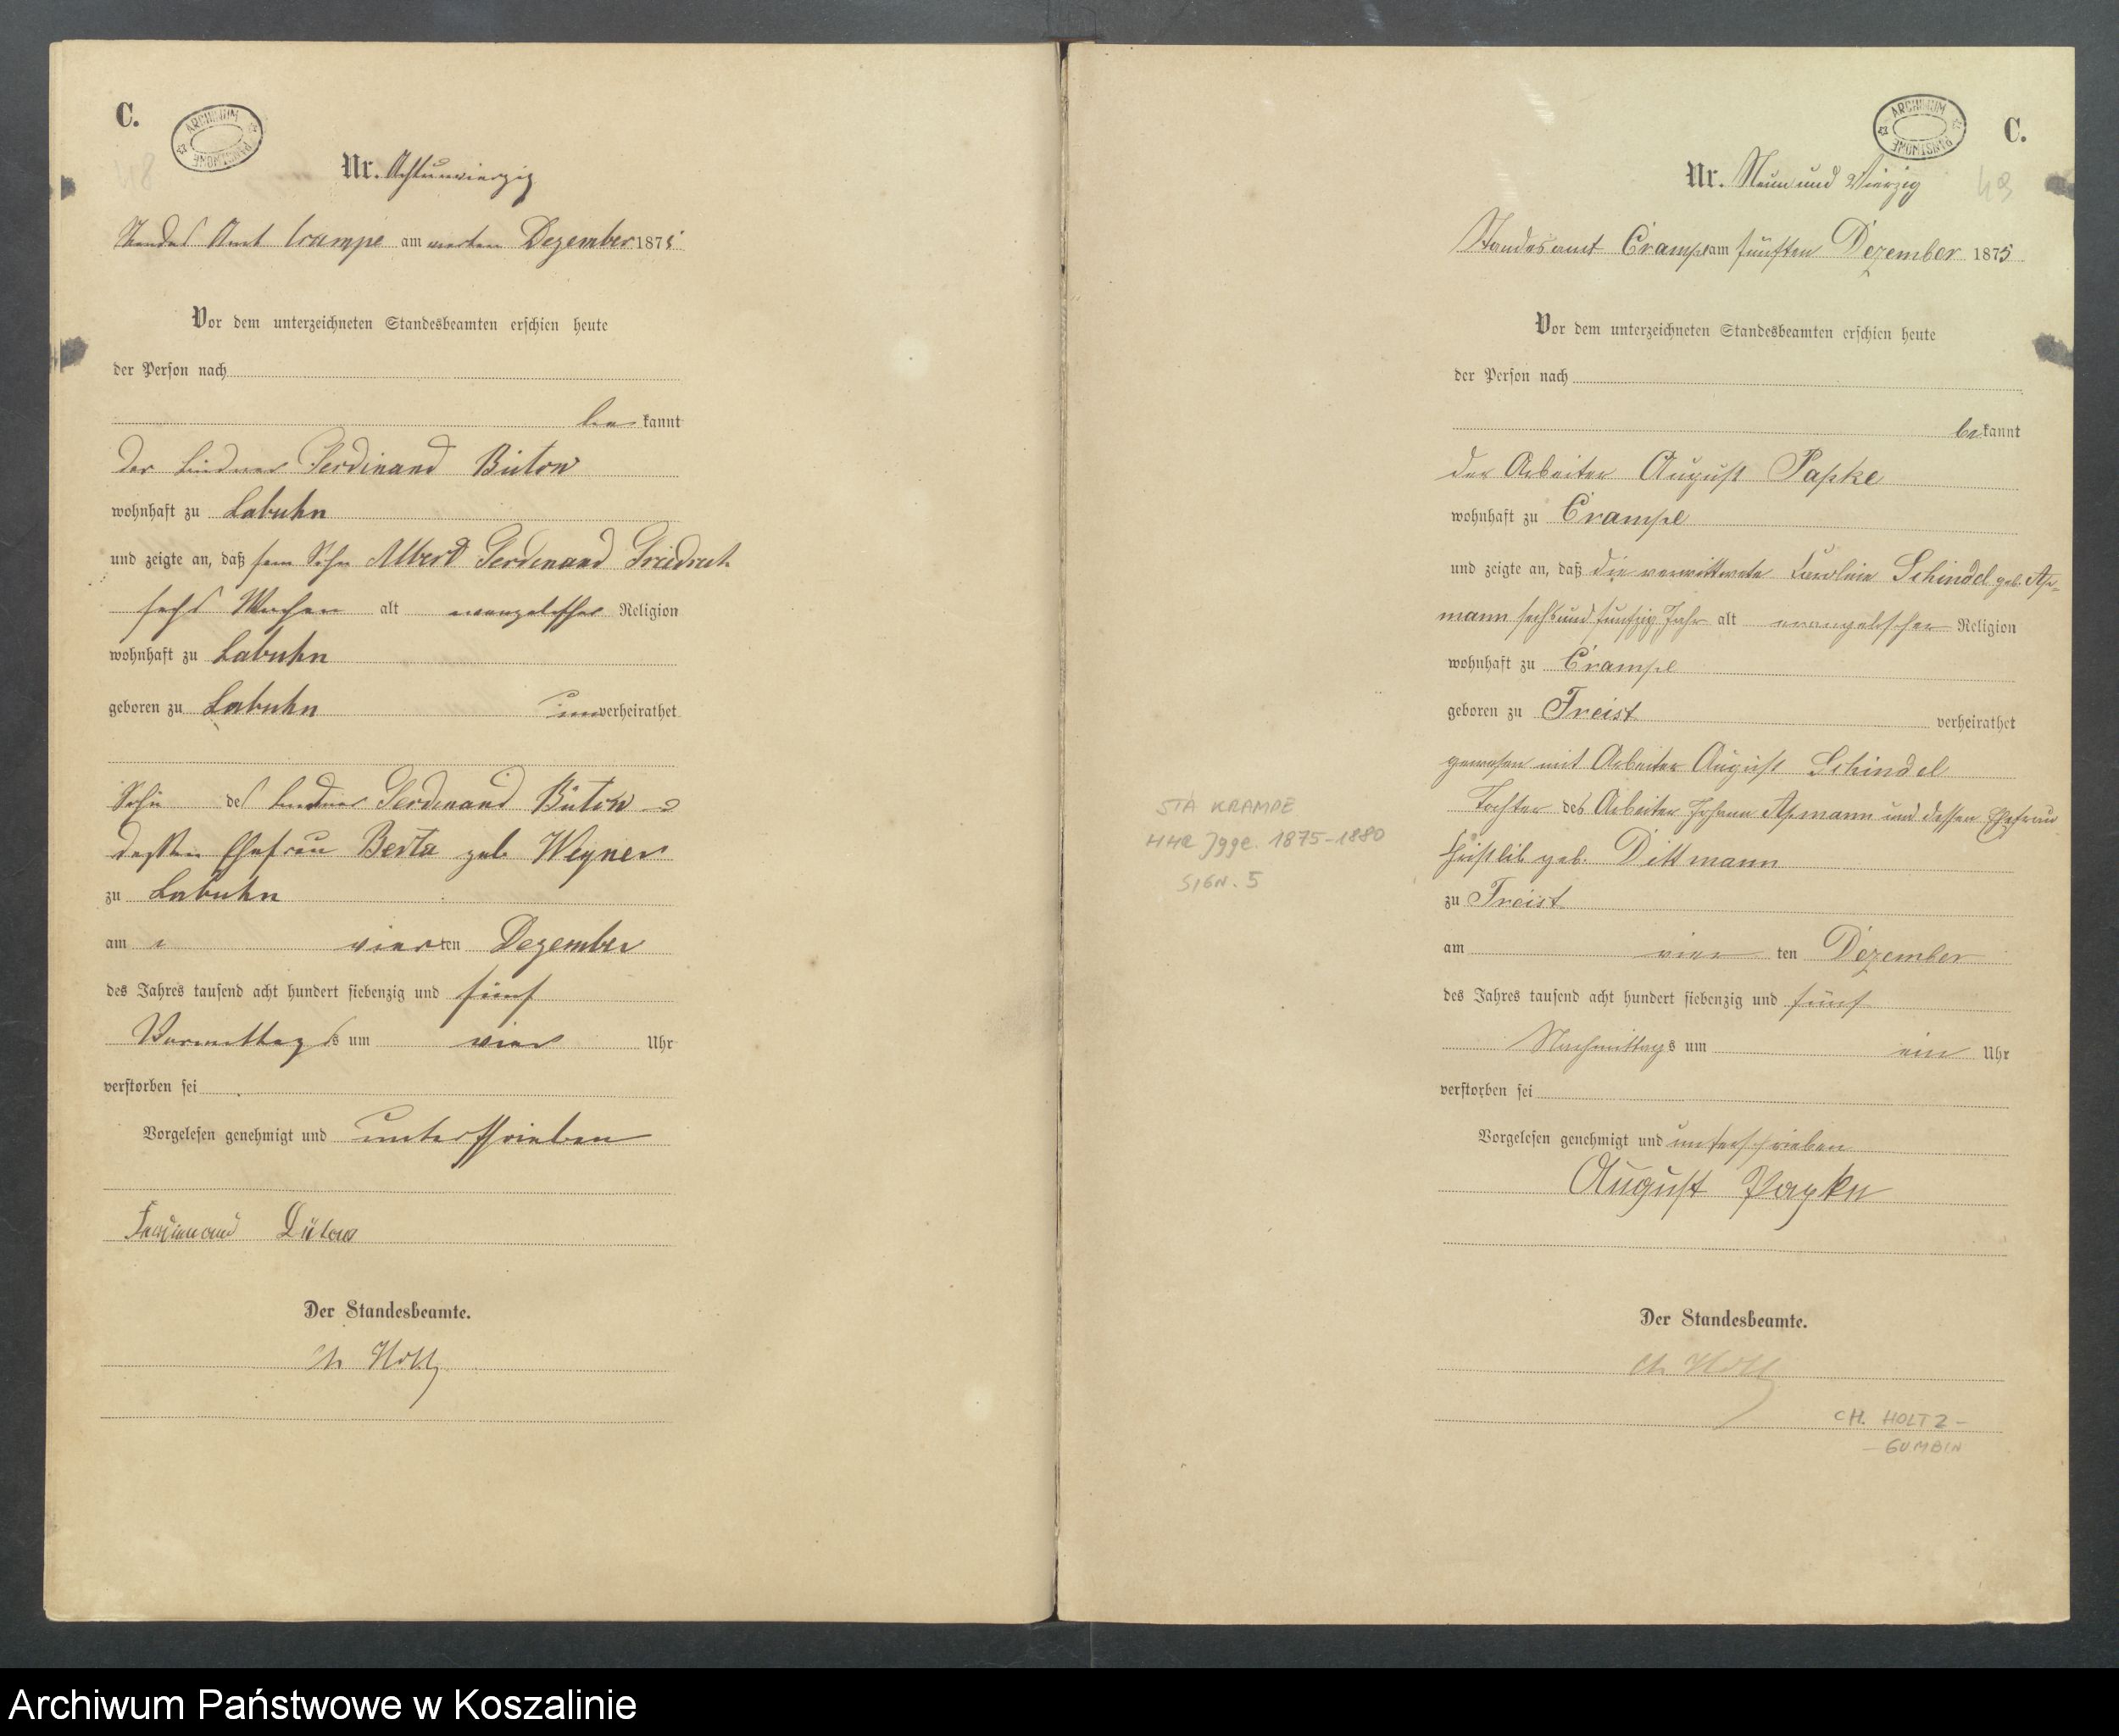 C.
ARCHIWUM PAŃSTWOWE
48
Nr. Achtunvierzig
Standes Amt Crampe am vierten Dezember 1875
Vor dem unterzeichneten Standesbeamten erschien heute
der Person nach
be kannt
der Büdner Ferdinand Bütow
wohnhaft zu Labuhn
und zeigte an, daß sein Sohn Albert Ferdinand Friedrich
sechs Wochen alt evangelischer Religion
wohnhaft zu Labuhn
geboren zu Labuhn unverheirathet
Sohn des Büdner Ferdinand Bütow
dessen Ehefrau Berta geb Wegner
zu Labuhn
am vierten Dezember
des Jahres tausend acht hundert siebenzig und fünf
Vormittags um vier Uhr
verstorben sei
Vorgelesen genehmigt und unterschrieben
Ferdinand Bütow
Der Standesbeamte.
Ch Holtz
ARCHIWUM PAŃSTWOWE
C.
Nr. Neun und Vierzig 49
Standesamt Crampe am fünften Dezember 1875
Vor dem unterzeichneten Standesbeamten erschien heute
der Person nach
bekannt
der Arbeiter August Papke
wohnhaft zu Crampe
und zeigte an, daß die verwittwete Karoline Schindel geb. Aß-
mann sechs und funfzig Jahr alt evangelischer Religion
wohnhaft zu Crampe
geboren zu Freist verheirathet
gewesen mit Arbeiter August Schindel
Tochter des Arbeiter Johann Aßmann und dessen Ehefrau
geb. Dittmann
zu Freist
am vier ten Dezember
des Jahres tausend acht hundert siebenzig und fünf
Nachmittags um ein Uhr
verstorben sei
Vorgelesen genehmigt und unterschrieben
August Papke
Der Standesbeamte.
Ch Holtz
CH. HOLTZ-
-GUMBIN
STA KRAMPE
HHR Jgge. 1875-1880
SIGN. 5
Archiwum Państwowe w Koszalinie